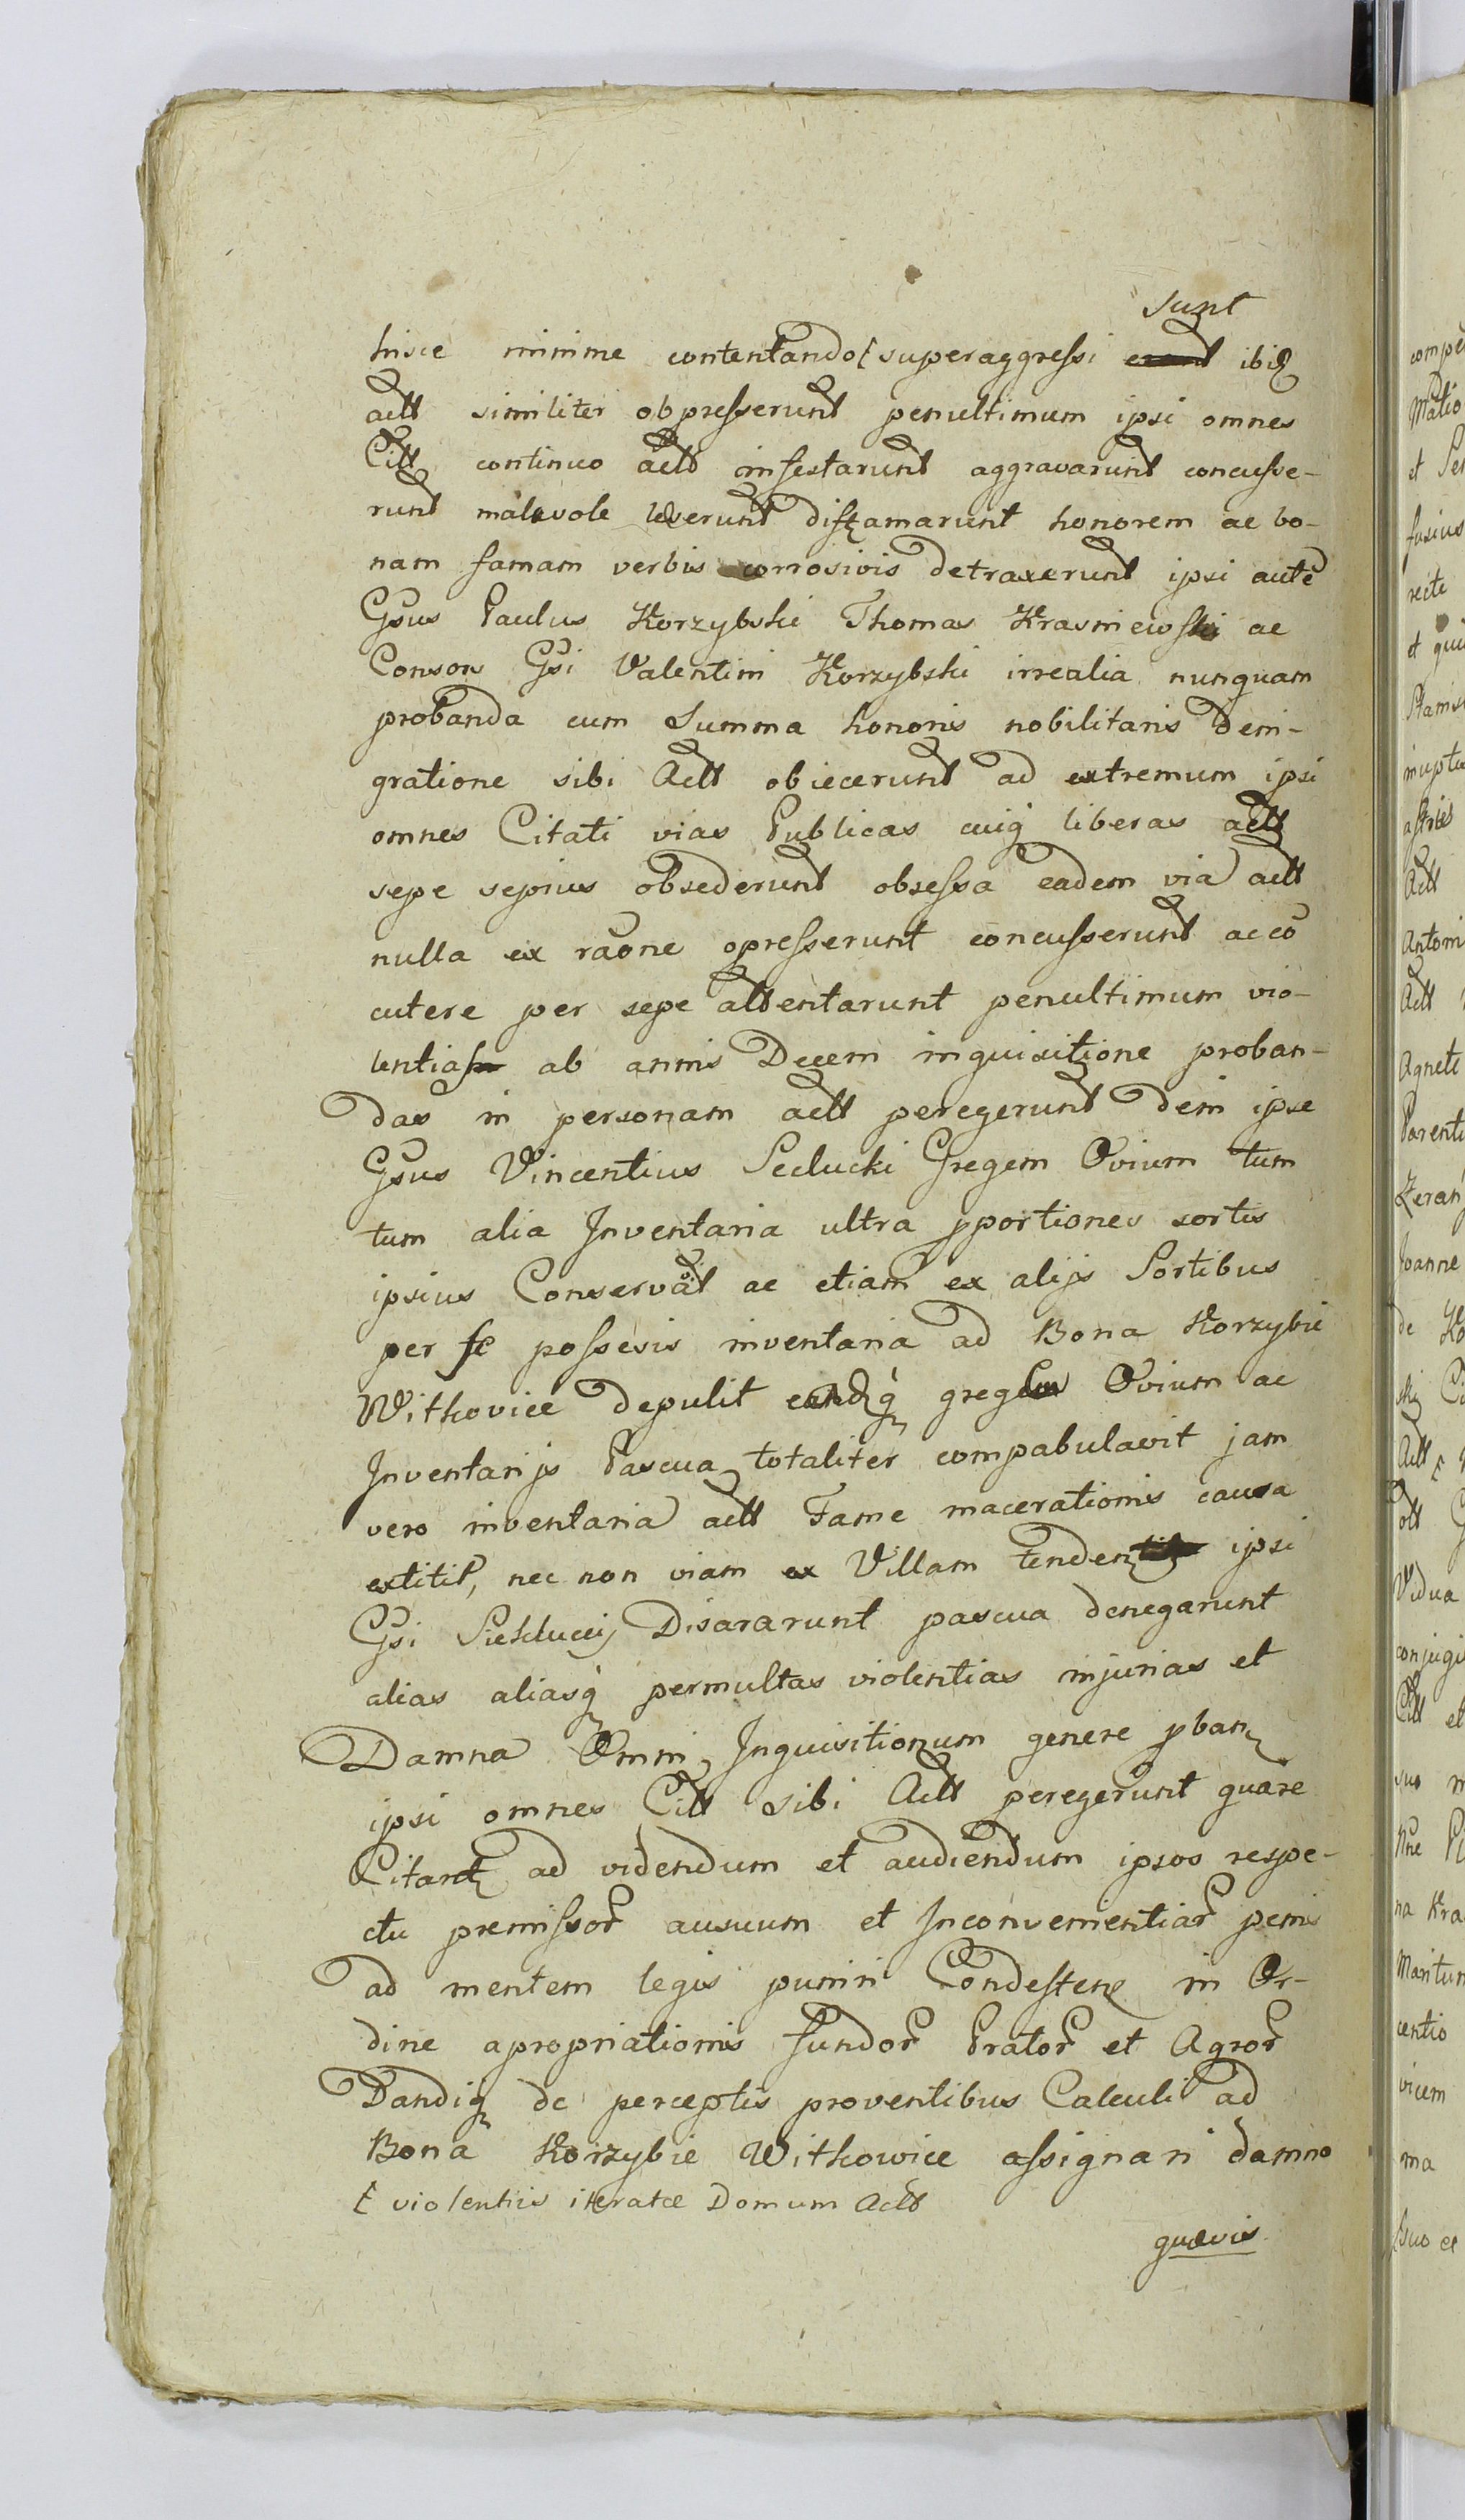 sunt
hisce minime contentando superaggressi ibid
actt similiter obpresserunt penultimum ipsi omnes
Citt continuo actt infestarunt aggravarunt concusse-
runt malevole leserunt diffamarunt honorem ac bo-
nam famam verbis corrosivis detraxerunt ipsi aute
Gsus Paulus Korzybski Thomas Krasniewski ac
Consors Gsi Valentini Korzybski irrealia nunquam
probanda cum Summa honoris nobilitaris deni-
gratione sibi Actt obiecerunt ad extremum ipsi
omnes Citati vias Publicas cuiq liberas actt
sepe sepius obsederunt obsessa eadem via actt
nulla ex raone opresserunt concusserunt ac co
cutere per sepe attentarunt penultimum vio-
lentias ab annis Decem inquisitione proban-
das in personam actt peregerunt dein ipse
Gsus Vincentius Seclucki Gregem Ovium tum
tum alia Inventaria ultra pportiones sortis
ipsius Conservat ac etiam ex alijs Sortibus
per se possesis inventaria ad Bona Korzybie
Witkovice depulit eandq gregem Ovium ac
Inventarijs Pascua totaliter compabulavit jam
vero inventaria actt Fame macerationis causa
extitit, nec non viam ex Villam tenden ipsi
Gsi Disararunt pascua denegarunt
alias aliasq permultas violentias injurias et
Damna Omni Inquisitionum genere pban
ipsi omnes Citt sibi Actt peregerunt quare
Citant ad videndum et audiendum ipsos respe-
ctu premissor ausuum et Inconvenientiar penis
ad mentem legis puniri Condesten in Or-
dine apropriationis fundor Prator et Agror
Dandiq de perceptis proventibus Calculi ad
Bona Korzybie Witkowice assignari damno
violentiis iterate Domum Actt
quævis